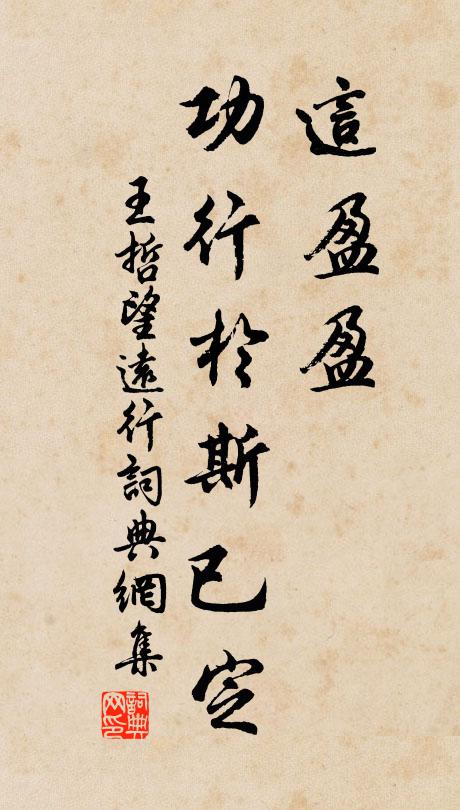 這盈盈
功行於斯已定
王哲望遠行詞典網集
詞典网印